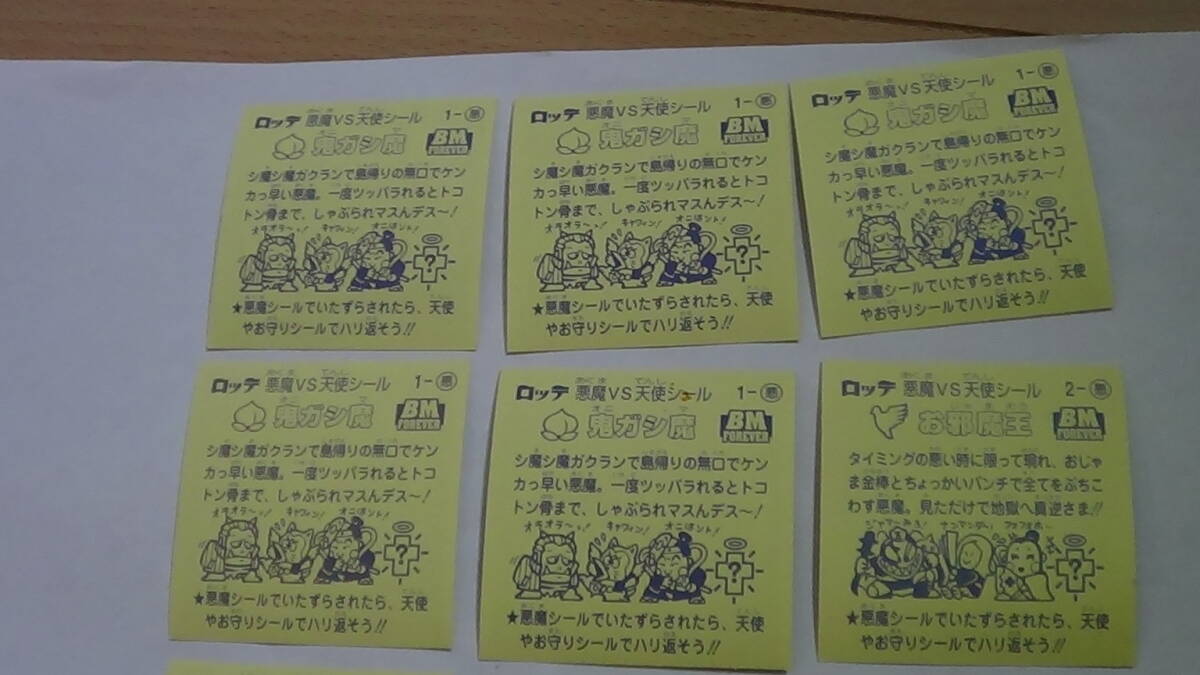 ロッテ 悪魔VS天使シール 1-悪
鬼ガシ魔 BM FOREVER
シ魔シ魔ガクランで島帰りの無口でケン
カっ早い悪魔。一度ツッパラれるとトコ
トン骨まで、しゃぶられマスんデス〜!
オラオラ〜ッ! キャウィン! オニはント!
?
★悪魔シールでいたずらされたら、天使
やお守りシールでハリ返そう!!
ロッテ 悪魔VS天使シール 1-悪
鬼ガシ魔 BM FOREVER
シ魔シ魔ガクランで島帰りの無口でケン
カっ早い悪魔。一度ツッパラれるとトコ
トン骨まで、しゃぶられマスんデス〜!
オラオラ〜ッ! キャウィン! オニはント!
?
★悪魔シールでいたずらされたら、天使
やお守りシールでハリ返そう!!
ロッテ 悪魔VS天使シール 1-悪
鬼ガシ魔 BM FOREVER
シ魔シ魔ガクランで島帰りの無口でケン
カっ早い悪魔。一度ツッパラれるとトコ
トン骨まで、しゃぶられマスんデス〜!
オラオラ〜ッ! キャウィン! オニはント!
?
★悪魔シールでいたずらされたら、天使
やお守りシールでハリ返そう!!
ロッテ 悪魔VS天使シール 1-悪
鬼ガシ魔 BM FOREVER
シ魔シ魔ガクランで島帰りの無口でケン
カっ早い悪魔。一度ツッパラれるとトコ
トン骨まで、しゃぶられマスんデス〜!
オラオラ〜ッ! キャウィン! オニはント!
?
★悪魔シールでいたずらされたら、天使
やお守りシールでハリ返そう!!
ロッテ 悪魔VS天使シール 1-悪
鬼ガシ魔 BM FOREVER
シ魔シ魔ガクランで島帰りの無口でケン
カっ早い悪魔。一度ツッパラれるとトコ
トン骨まで、しゃぶられマスんデス〜!
オラオラ〜ッ! キャウィン! オニはント!
?
★悪魔シールでいたずらされたら、天使
やお守りシールでハリ返そう!!
ロッテ 悪魔VS天使シール 2-悪
お邪魔王 BM FOREVER
タイミングの悪い時に限って現れ、おじゃ
ま金棒とちょっかいパンチで全てをぶちこ
わす悪魔。見ただけで地獄へ真逆さま!!
?
★悪魔シールでいたずらされたら、天使
やお守りシールでハリ返そう!!